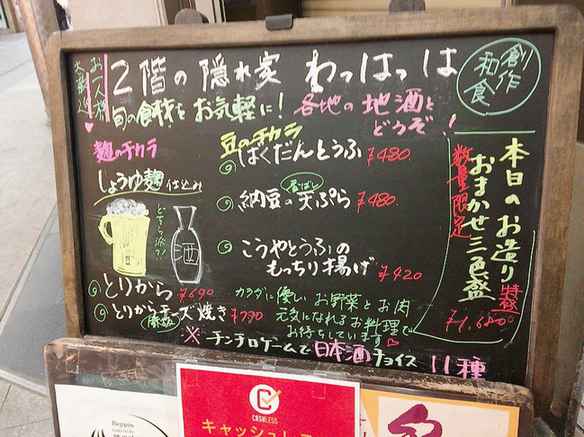 お一人様
大歓迎
2階の隠れ家 わっはっは
創作
和食
旬の食材をお気軽に! 各地の地酒と
どうぞ!
麹のチカラ
しょうゆ麹 仕込み
どちら派?!
酒
とりから ¥690
とりからチーズ焼き ¥790
豆のチカラ
ばくだんとうふ ¥480
納豆の天ぷら ¥480
こうやとうふの
もっちり揚げ ¥420
カラダに優しいお野菜とお肉
元気になれるお料理で
お待ちしています
本日のお造り
おまかせ三色盛
数量限定
特価
¥1,680
※チンチロゲームで日本酒チョイス 11種
CASHLESS
キャッシュレス
Beppin